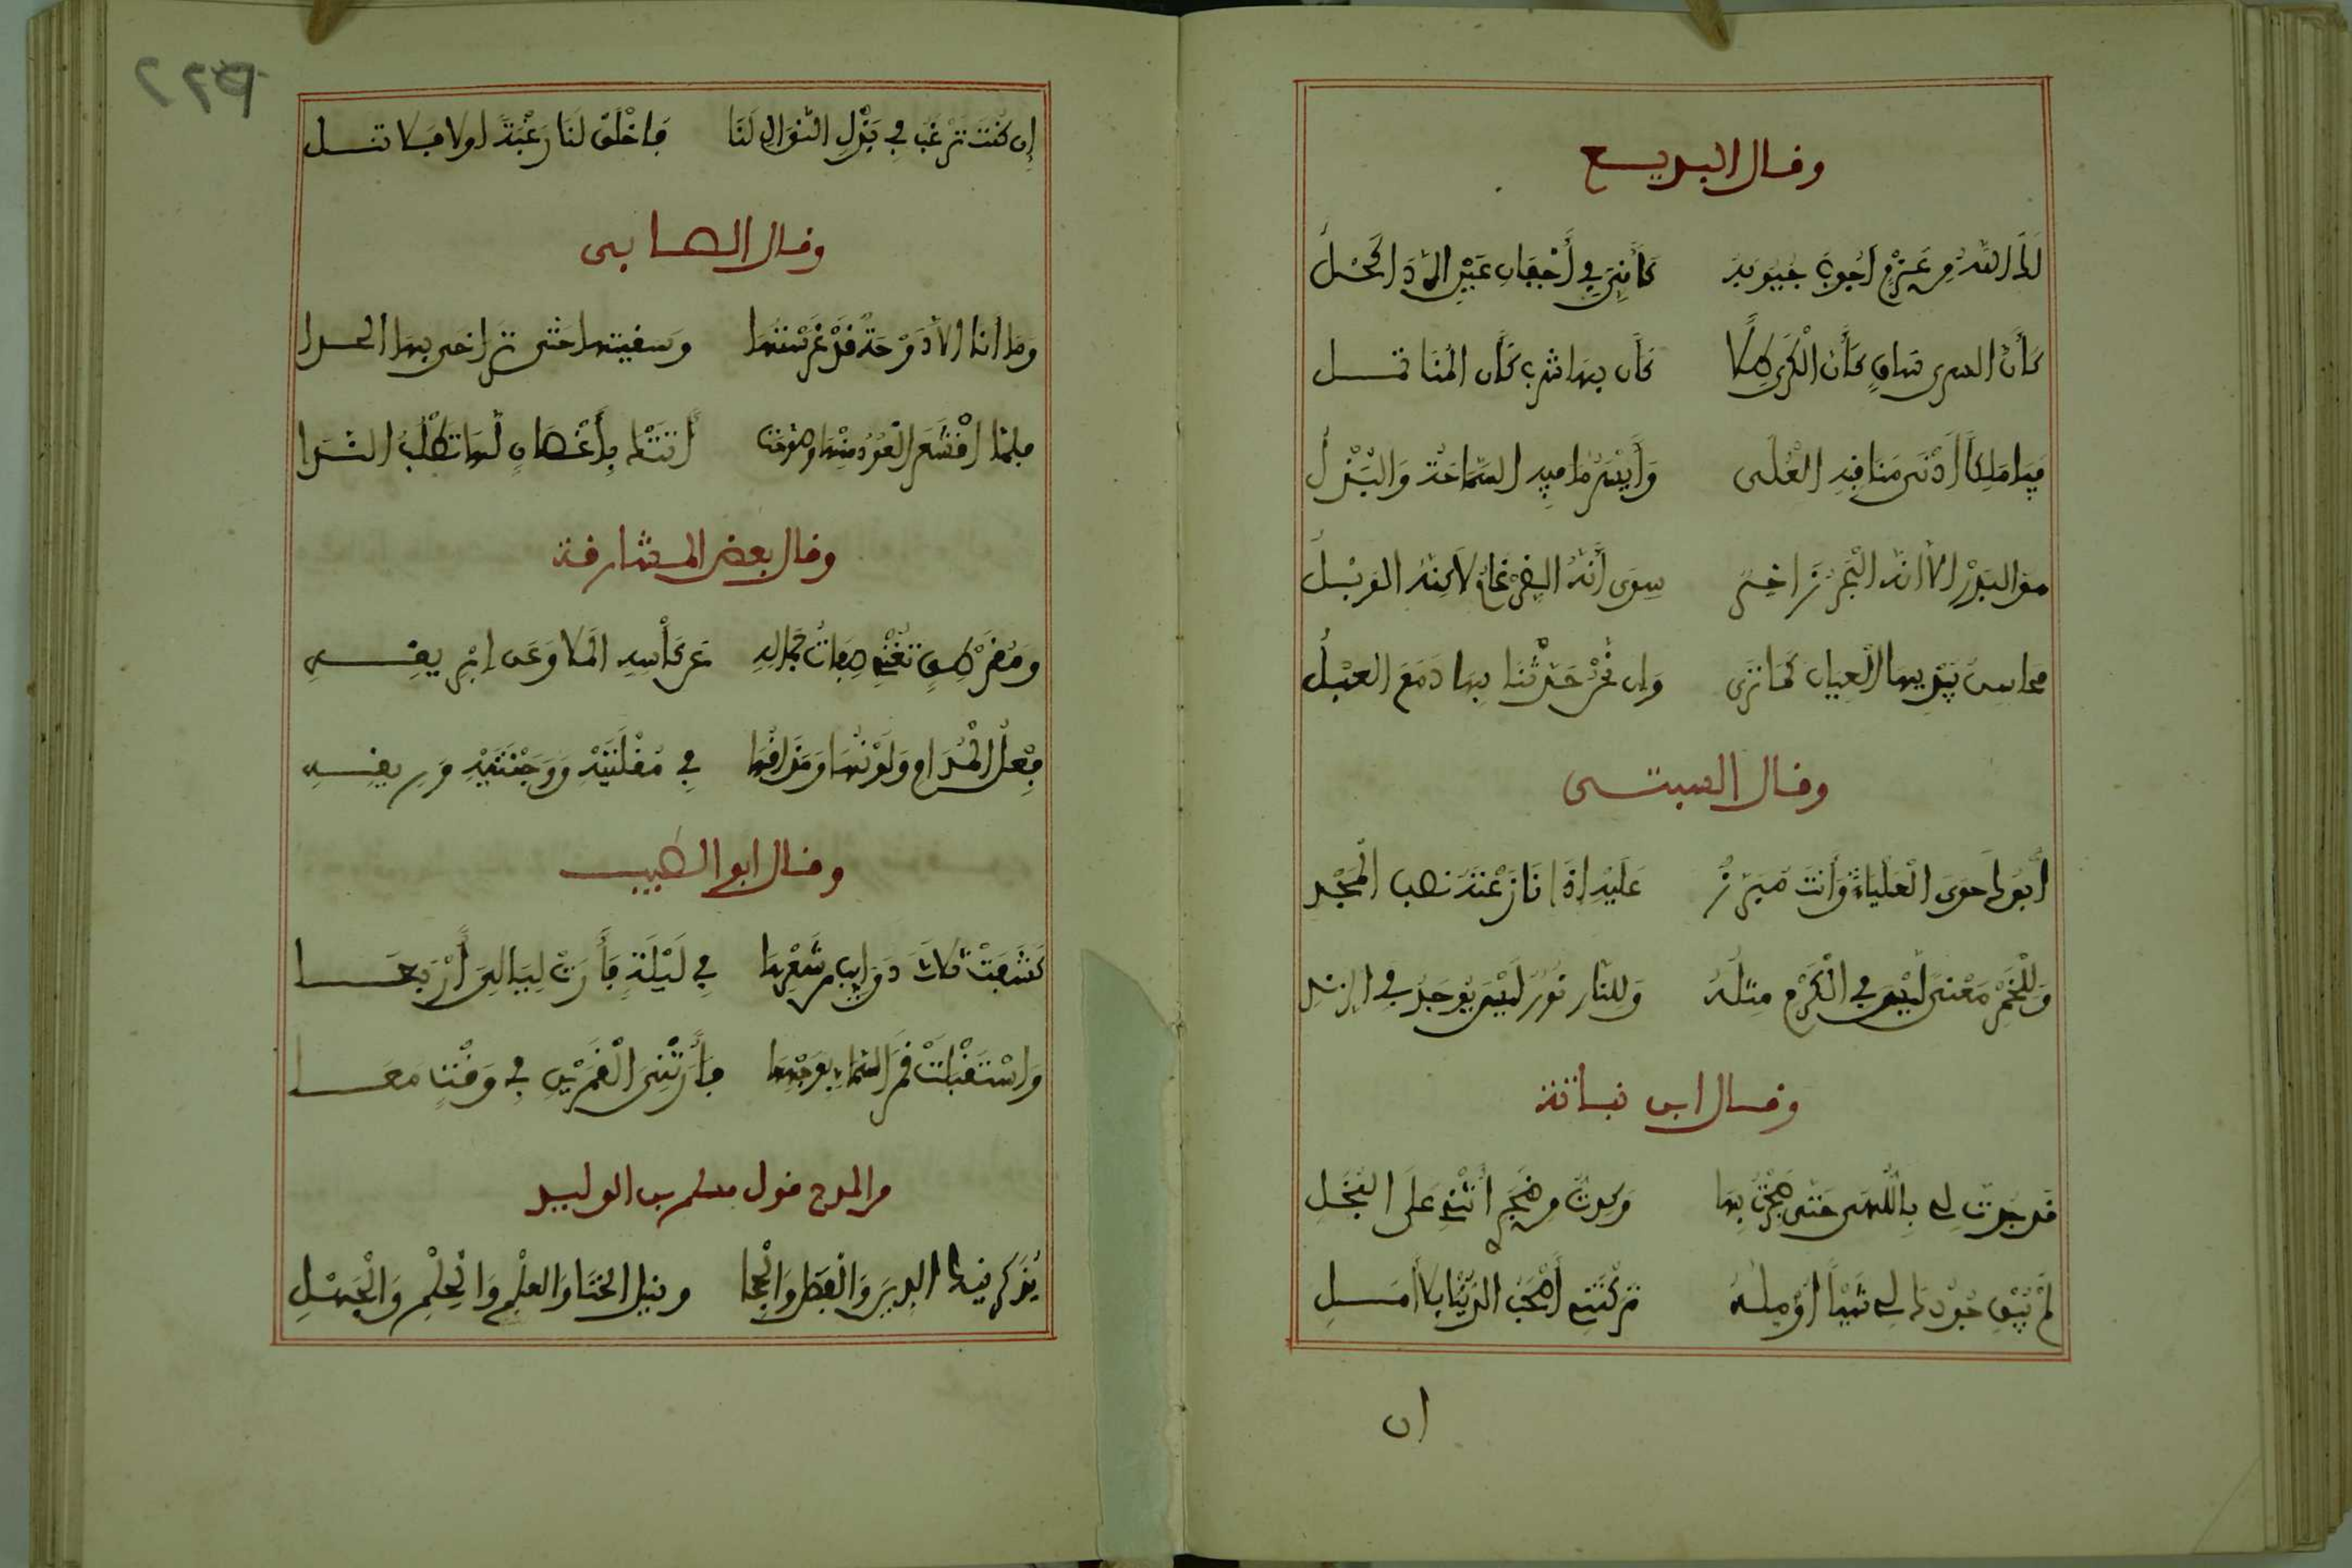 وقال البديع
لك الله من عزم أجوب جيوبه كأني في أجفان عين الردى كحل
كأن السرى ساق كأن الكرى طلا كأن بها شرب كأن المنا نقل
فيا ملكا أدنى مناقبه العلى وأيسر ما فيه السماحة والبذل
هو البدر إلا أنه البحر زاخر سوى أنه الضرغام لاكنه الوبل
محاسن يبديها العيان كما ترى وإن نحن حدثنا بها دفع العقل
وقال البستي
أبوك حوى العلياء وأنت مبرز عليه إذا نازعته نصب المجد
وللخمر معنى ليس في الكرم مثله وللنار نور ليس يوجد في الزند
وقال ابن نباتة
قد جدت لي باللهى حتى ضجرت بها وكدت من ضجر أثني على البخل
لم يبق جودك لي شيئا أؤمله تركتني أصحب الدنيا بلا أمل
ان
٢٢٩
إن كنت ترغب في بذل النوال لنا فاخلق لنا رغبة اولا فلا تنل
وقال الصابي
وما أنا إلا دوحة قد غرستها وسقيتها حتى تراخى بها المدا
فلما اقشعر العود منها وصوحت أتتك بأغصان لها تطلب الندا
وقال بعض المشارقة
ومقرطق تغني صفات جماله عن كأسه الملا وعن إبريقه
فعل المدام ولونها ومذاقها في مقلتيه ووجنتيه وريقه
وقال ابو الطيب
كشفت ثلاث ذوايب من شعرها في ليلة فأرت ليالي أربعا
واستقبلت قمر السماء بوجهها فأرتني القمرين في وقت معا
من المدح قول مسلم بن الوليد
يذكرنيك الدين والفضل والحجا وقيل الخنا والعلم والحلم والجهل